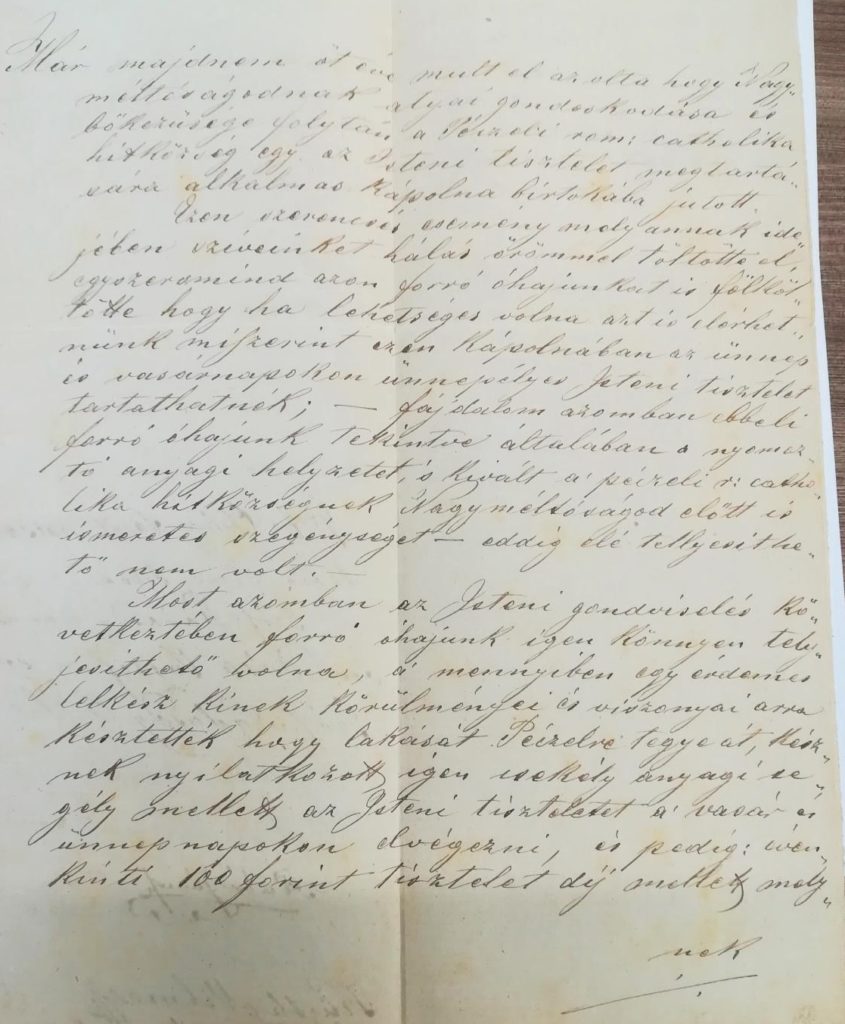 Már majdnem öt éve mult el az olta hogy Nagy„
méltóságodnak atyai gondoskodása és
bőkezüsége folytán a Péizeli rom: catholika
hitközség egy az Isteni tisztelet megtartá„
sára alkalmas kápolna birtokába jutott
Ezen szerencsés esemény mely annak ide„
jében sziveinket hálás örömmel töltötte el,
egyszersmind azon forró óhajunkat is fölköl„
tötte hogy ha lehetséges volna azt is elérhet„
nünk miszerint ezen kápolnában az ünnep
és vasárnapokon ünnepélyes Isteni tisztelet
tartathatnék; — fájdalom azomban ebbeli
forró óhajunk tekintve általában a nyomasz„
tó anyagi helyzetet, s kivált a' péizeli r: catho„
lika hitközségnek Nagyméltóságod előtt is
ismeretes szegénységét — eddig elé telljesithe„
tő nem volt. —
Most azomban az Isteni gondviselés kö„
vetkeztében forró óhajunk igen könnyen tely„
jesithető volna, a' mennyiben egy érdemes
lelkész kinek körülményei és viszonyai arra
késztették hogy lakását Péizelre tegye át, kész„
nek nyilatkozott igen csekély anyagi se„
gély mellett az Isteni tiszteletet a' vasár és
ünnepnapokon elvégezni, és pedig: éven„
kinti 100 forint tisztelet dij mellett mely„
nek